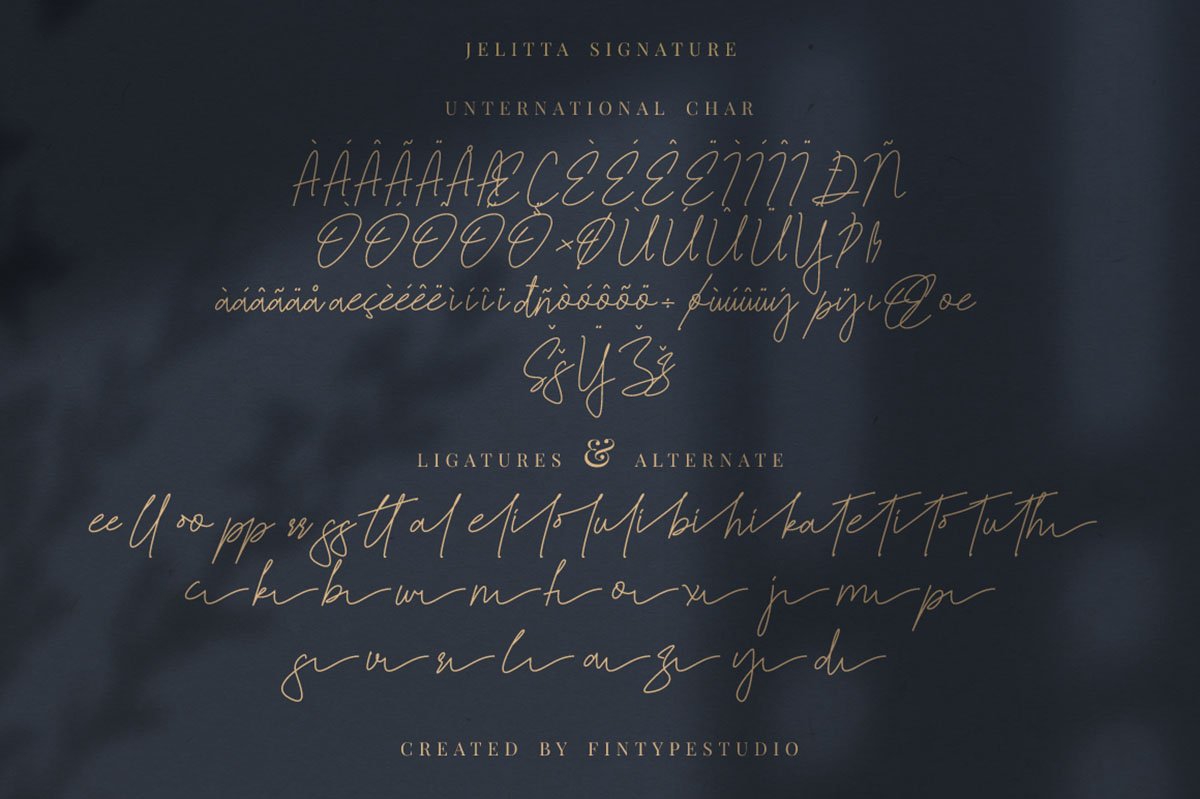 JELITTA SIGNATURE
UNTERNATIONAL CHAR
ÀÁÂÃÄÅÆÇÈÉÊËÌÍÎÏÐÑ
ÒÓÔÕÖ×ØÙÚÛÜÝÞß
àáâãäåæçèéêëìíîïđñòóôõö÷øùúûüýþÿıŒœ
ŠšŸŽž
LIGATURES & ALTERNATE
ee ll oo pp rr ss tt al el il ol ul li bi hi ka te ti to tu th
c k b w n t o x j m p
g v r l a z y d
CREATED BY FINTYPESTUDIO